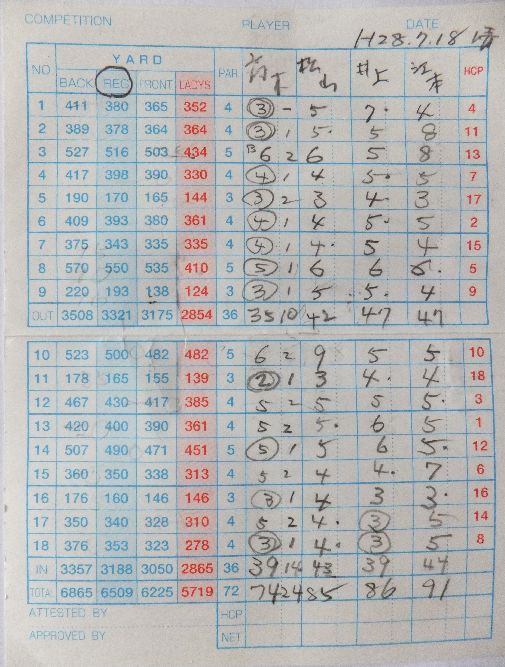 COMPETITION PLAYER DATE
H28.7.18 晴
NO. YARD PAR 青木 松山 井上 江本 HCP
BACK REG FRONT LADYS
1 411 380 365 352 4 3 - 5 7. 4 4
2 389 378 364 364 4 3 1 5. 5 8 11
3 527 516 503 434 5 6 2 6 5 8 13
4 417 398 390 330 4 4 1 4 5. 5 7
5 190 170 165 144 3 3 2 3 4. 3 17
6 409 393 380 361 4 4 1 4 5. 5 2
7 375 343 335 335 4 4 1 4. 5 4 15
8 570 550 535 410 5 5 1 6 6 6. 5
9 220 193 138 124 3 3 1 5 5. 4 9
OUT 3508 3321 3175 2854 36 35 10 42 47 47
10 523 500 482 482 5 6 2 9 5 5 10
11 178 165 155 139 3 2 1 3 4. 4 18
12 467 430 417 385 4 5 2 5 5 5. 3
13 420 400 390 361 4 5 2 5. 6 5 1
14 507 490 471 451 5 5 1 5 6 5. 12
15 360 350 338 313 4 5 2 4 4. 7 6
16 176 160 146 146 3 3 1 4 3 3. 16
17 350 340 328 310 4 5 2 4. 3 5 14
18 376 353 323 278 4 3 1 4. 3 5 8
IN 3357 3188 3050 2865 36 39 14 43 39 44
TOTAL 6865 6509 6225 5719 72 74 24 85 86 91
ATTESTED BY HCP
APPROVED BY NET